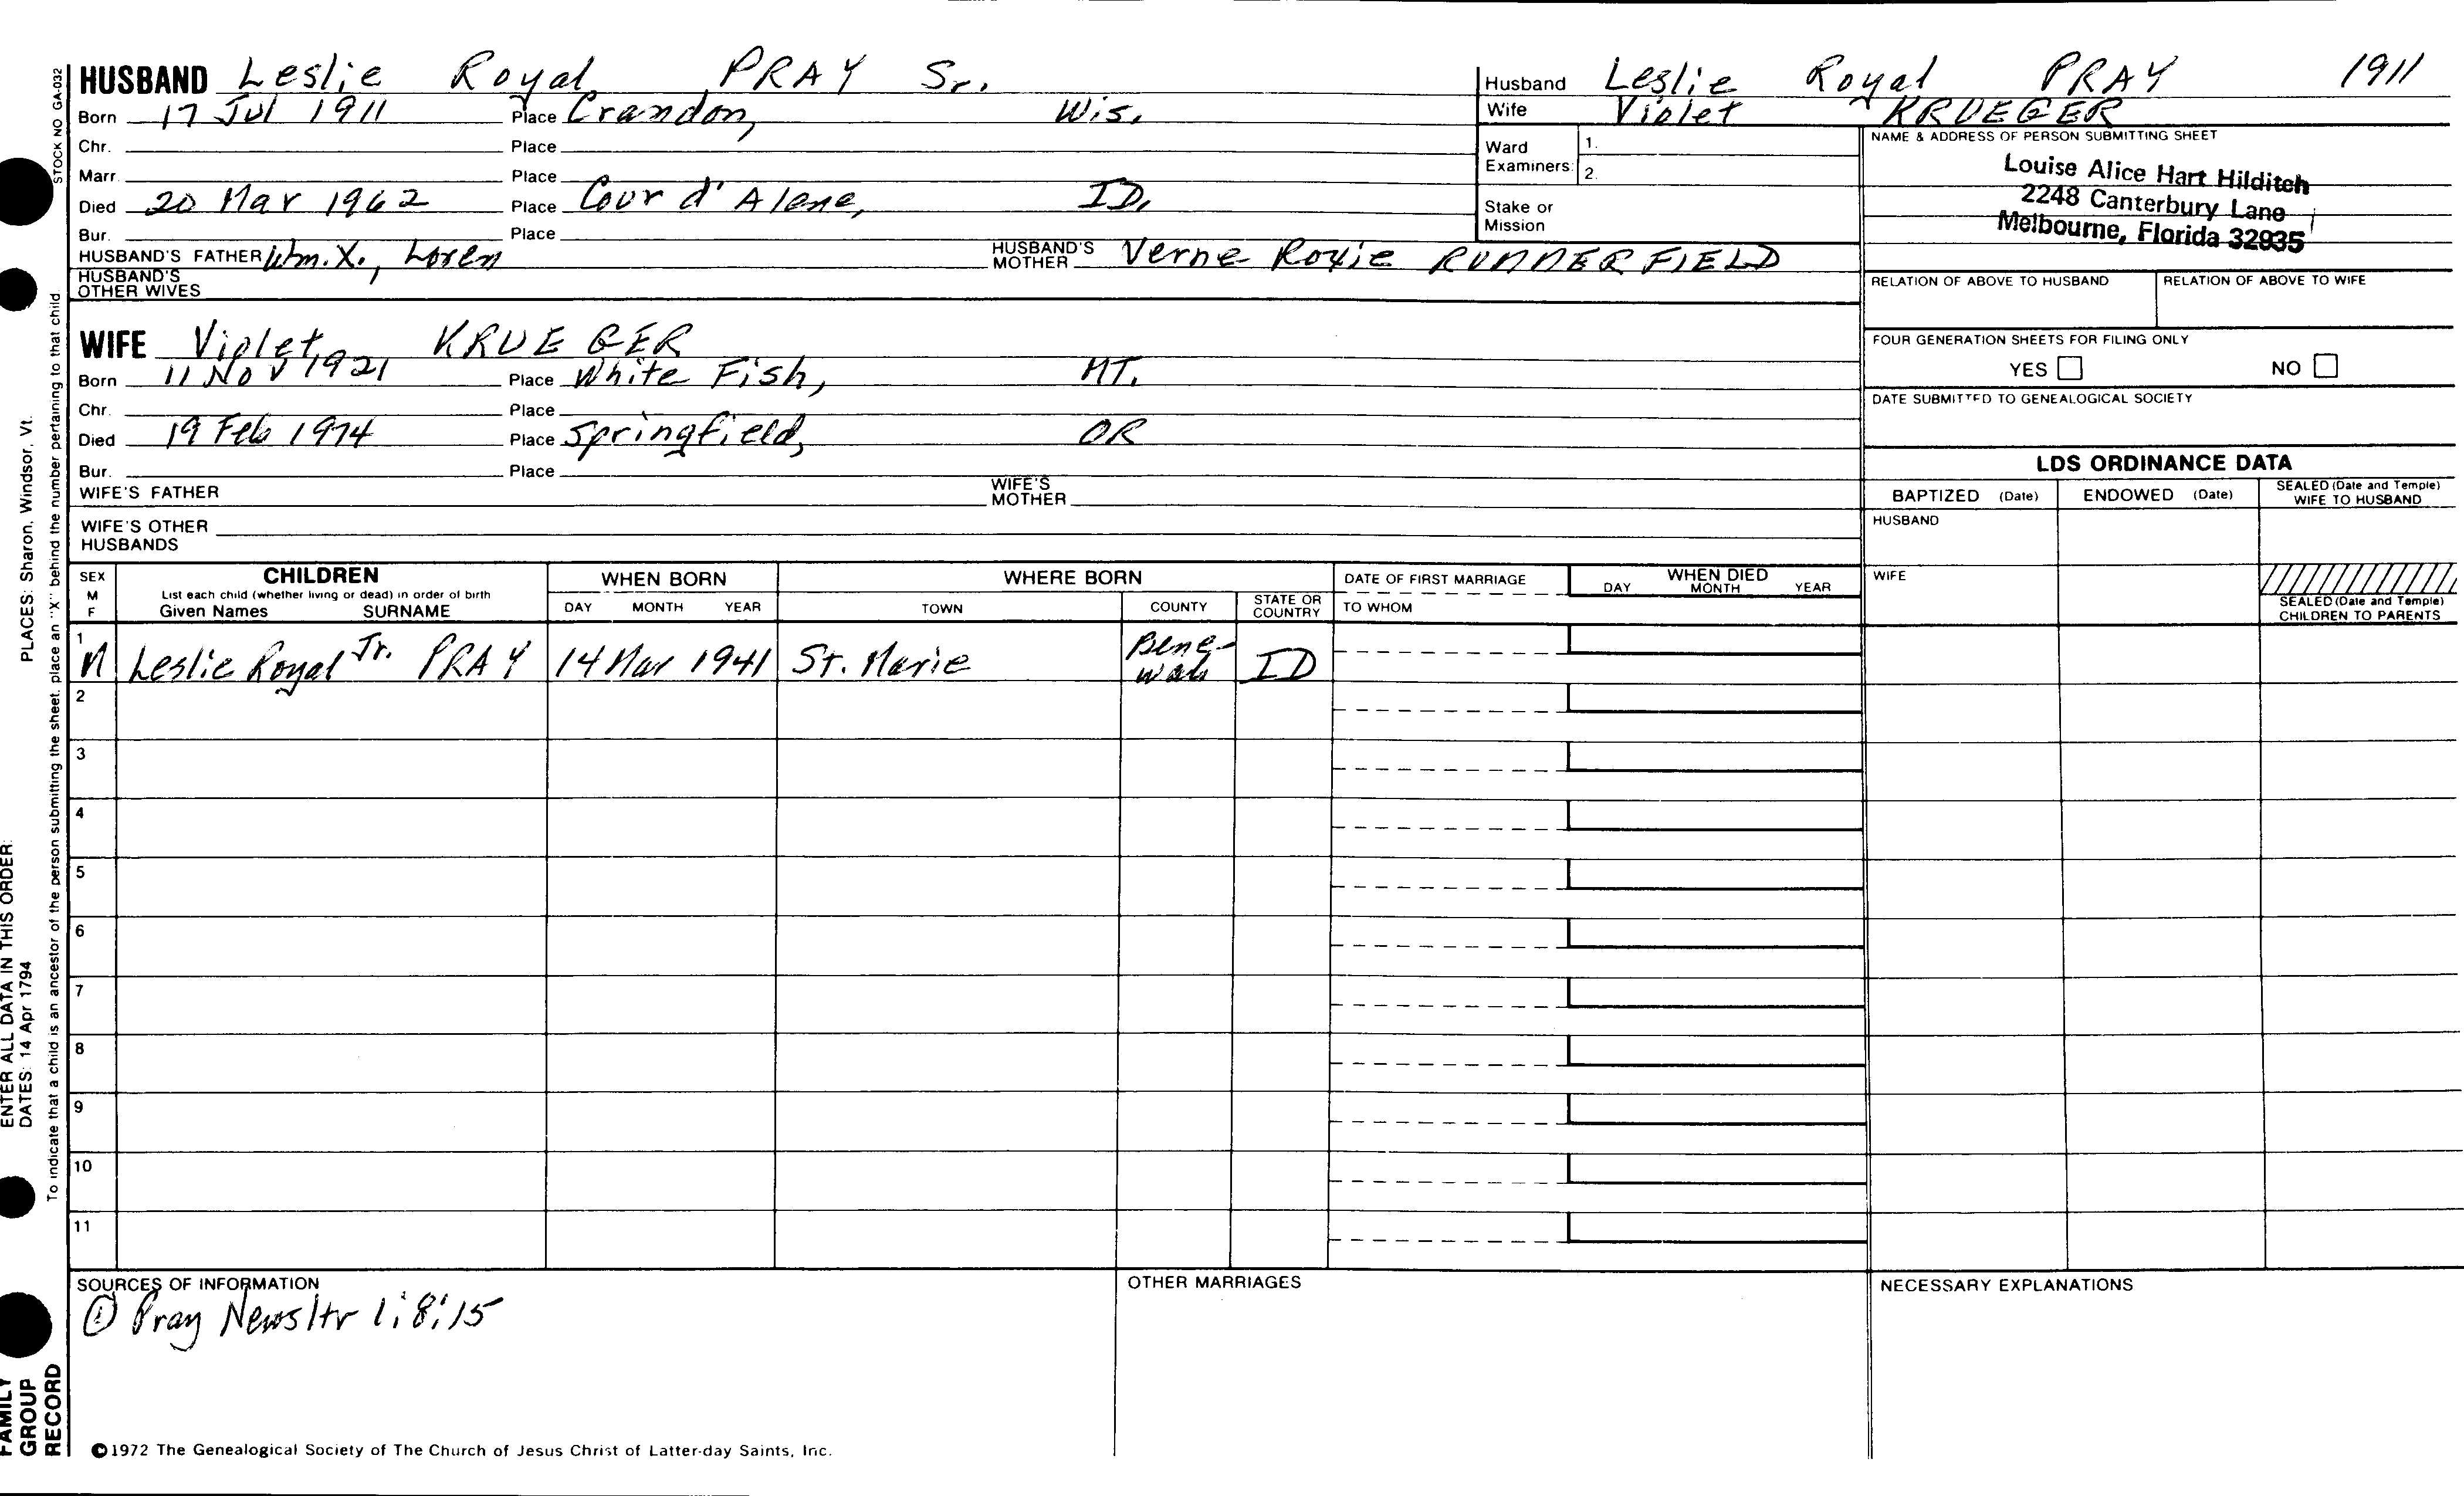 STOCK NO GA-032
HUSBAND Leslie Royal PRAY Sr.
Born 17 Jul 1911 Place Crandon, Wis.
Chr. Place
Marr. Place
Died 20 Mar 1962 Place Cour d'Alene, ID.
Bur. Place
HUSBAND'S FATHER Wm. X., Loren HUSBAND'S MOTHER Verne Roxie RUNNERFIELD
HUSBAND'S OTHER WIVES
WIFE Violet, KRUEGER
Born 11 Nov 1921 Place White Fish, MT.
Chr. Place
Died 19 Feb 1974 Place Springfield, OR
Bur. Place
WIFE'S FATHER WIFE'S MOTHER
WIFE'S OTHER HUSBANDS
Husband Leslie Royal PRAY 1911
Wife Violet KRUEGER
Ward Examiners: 1.
2.
Stake or Mission
NAME & ADDRESS OF PERSON SUBMITTING SHEET
Louise Alice Hart Hilditch
2248 Canterbury Lane
Melbourne, Florida 32935
RELATION OF ABOVE TO HUSBAND RELATION OF ABOVE TO WIFE
FOUR GENERATION SHEETS FOR FILING ONLY
YES NO
DATE SUBMITTED TO GENEALOGICAL SOCIETY
LDS ORDINANCE DATA
BAPTIZED (Date) ENDOWED (Date) SEALED (Date and Temple) WIFE TO HUSBAND
HUSBAND
WIFE
SEALED (Date and Temple) CHILDREN TO PARENTS
SEX M F
CHILDREN
List each child (whether living or dead) in order of birth
Given Names SURNAME
WHEN BORN
DAY MONTH YEAR
WHERE BORN
TOWN COUNTY STATE OR COUNTRY
DATE OF FIRST MARRIAGE
TO WHOM
WHEN DIED
DAY MONTH YEAR
1 M Leslie Royal Jr. PRAY 14 Mar 1941 St. Marie Bene-wah ID
2
3
4
5
6
7
8
9
10
11
SOURCES OF INFORMATION
① Pray Newsltr 1:8:15
OTHER MARRIAGES
NECESSARY EXPLANATIONS
©1972 The Genealogical Society of The Church of Jesus Christ of Latter-day Saints, Inc.
FAMILY GROUP RECORD
ENTER ALL DATA IN THIS ORDER:
DATES: 14 Apr 1794 PLACES: Sharon, Windsor, Vt.
To indicate that a child is an ancestor of the person submitting the sheet, place an "X" behind the number pertaining to that child